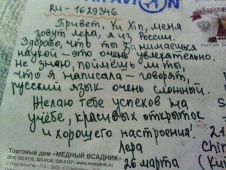 AVION
RU-1629346
Привет, Yu Xin, меня
зовут Лера, я из России.
Здорово, что ты занимаешься
наукой – это очень увлекательно.
Не знаю, поймёшь ли ты,
что я написала – говорят,
русский язык очень сложный.
Желаю тебе успехов на
учёбе, красивых открыток
и хорошего настроения!
Торговый дом «МЕДНЫЙ ВСАДНИК»
Лера
26 марта